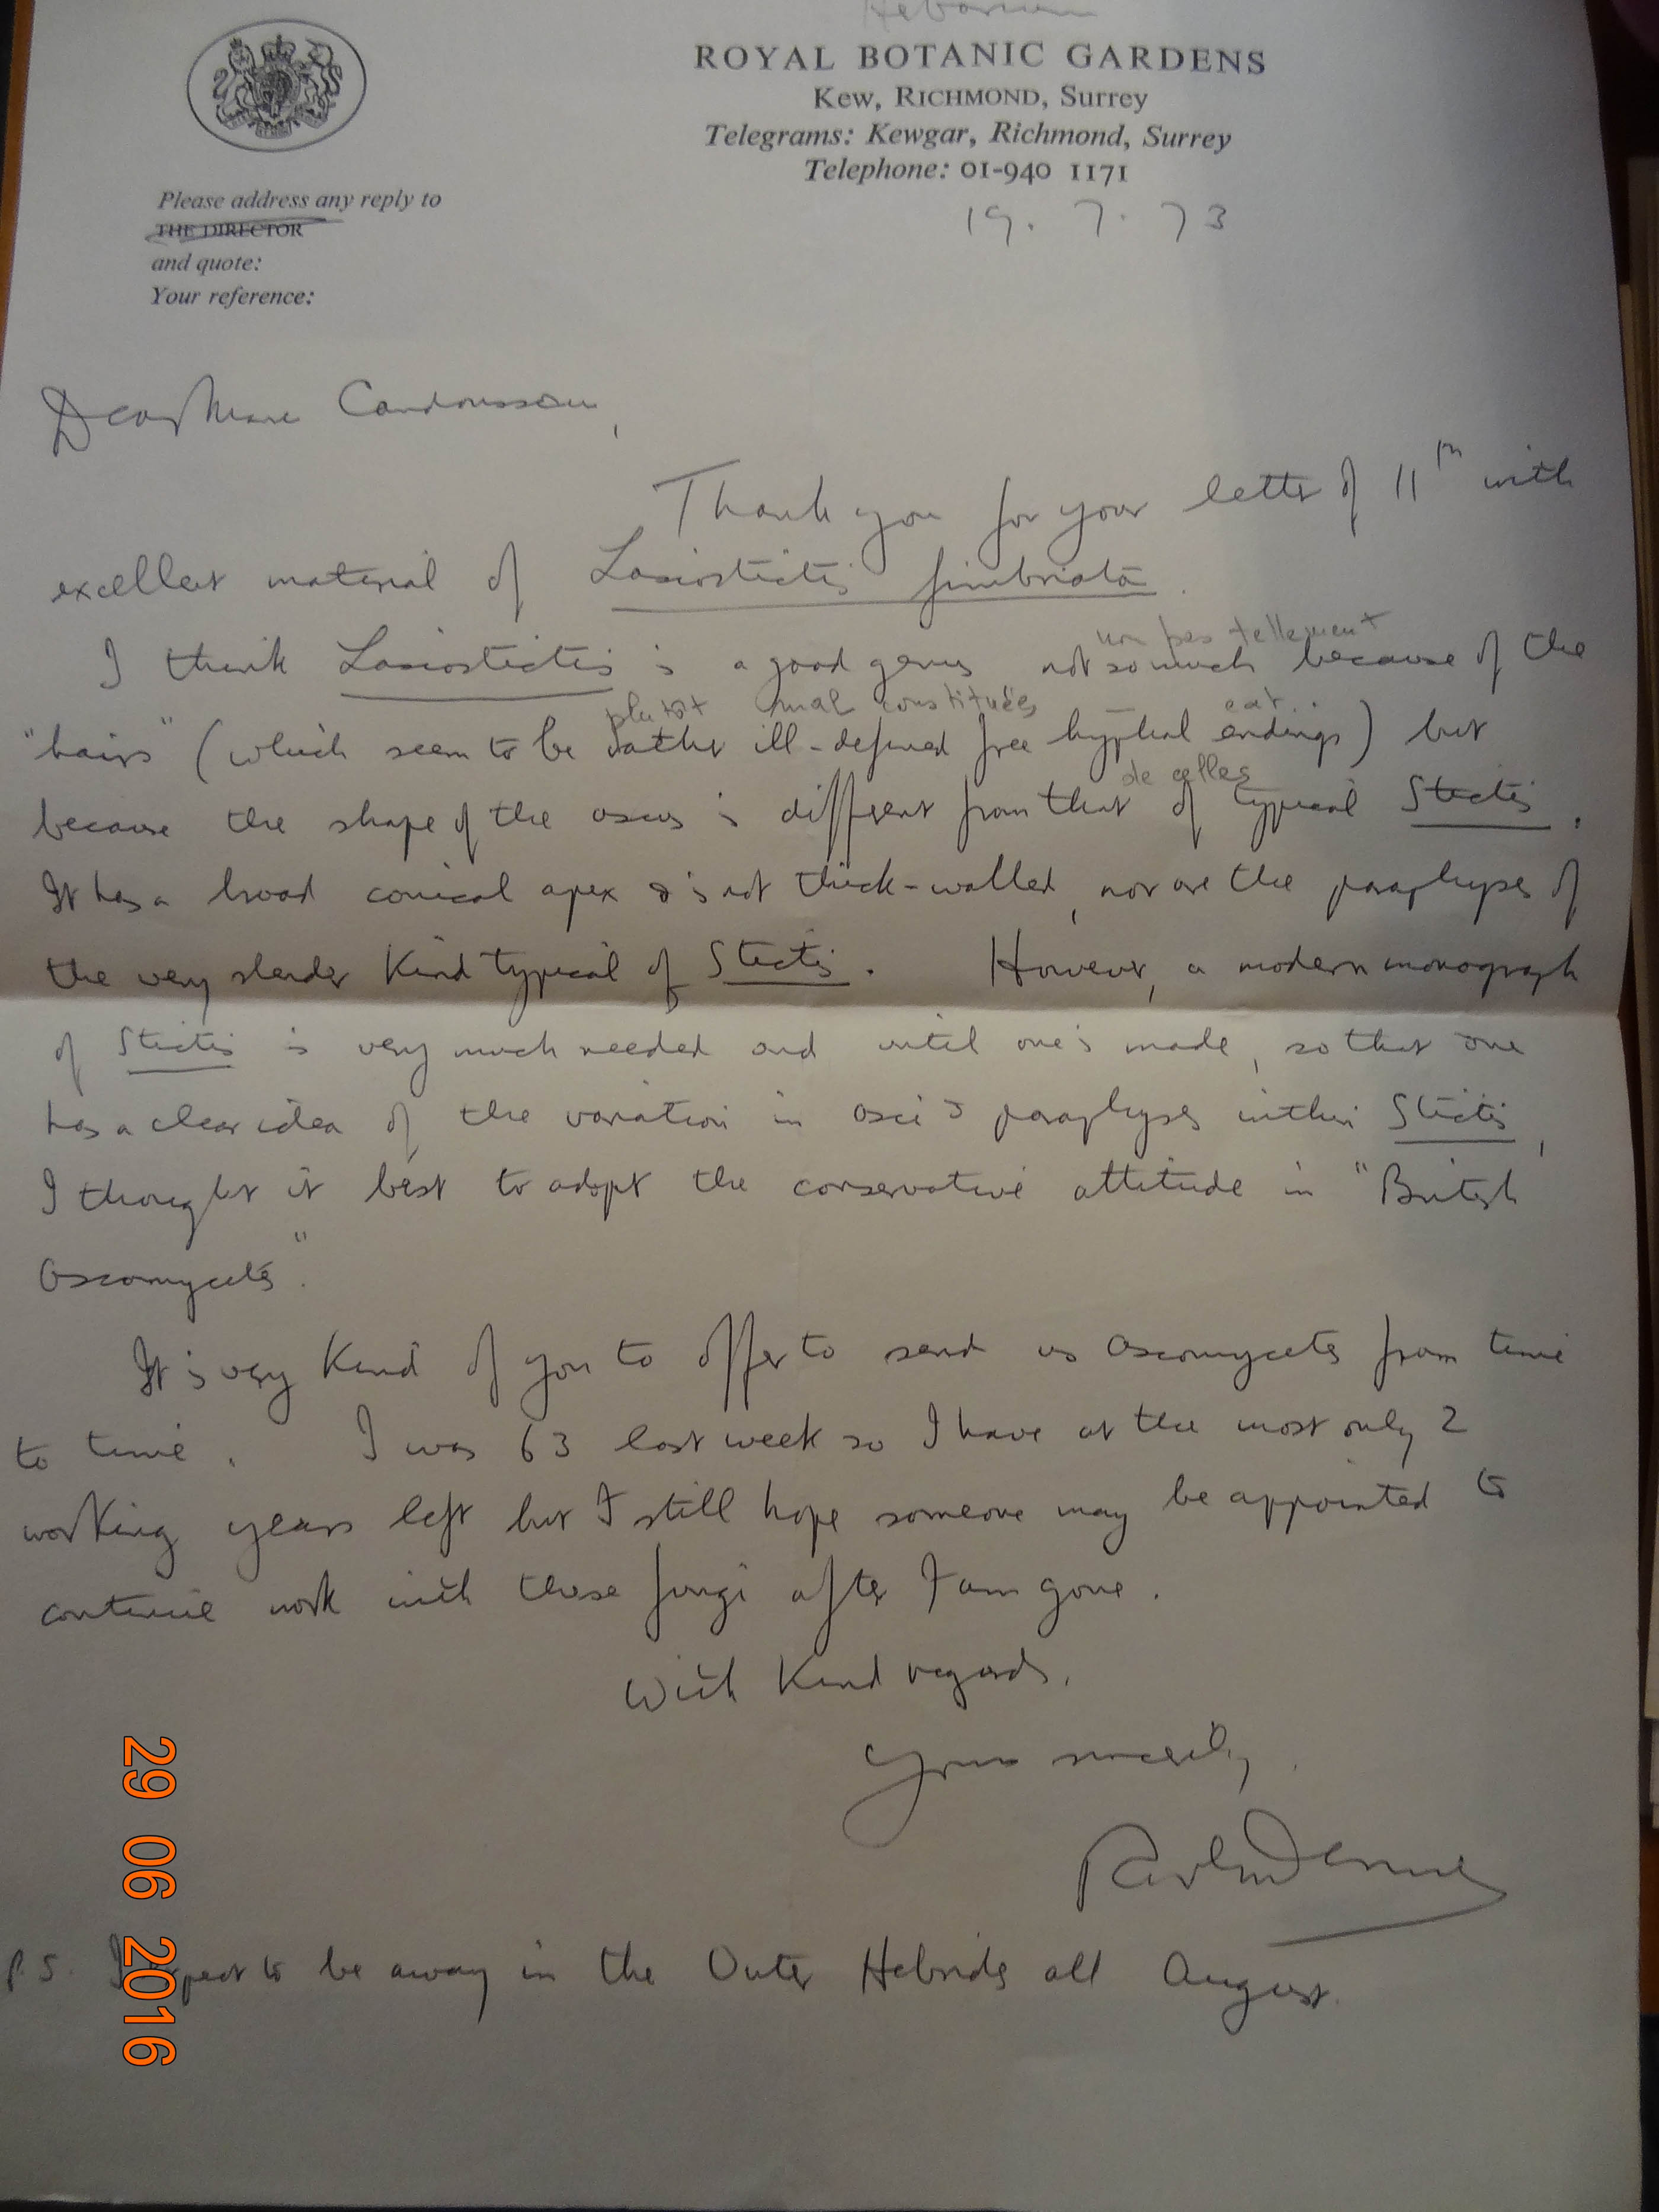 Herbarium
ROYAL BOTANIC GARDENS
Kew, RICHMOND, Surrey
Telegrams: Kewgar, Richmond, Surrey
Telephone: 01-940 1171
19. 7. 73
Please address any reply to
THE DIRECTOR
and quote:
Your reference:
Dear Mme Candoussau,
Thank you for your letter of 11th with
excellent material of Lasiostictis fimbriata.
non pas tellement
I think Lasiostictis is a good genus not so much because of the
plutôt mal constituées ext..
"hairs" (which seem to be rather ill-defined free hyphal endings) but
de celles
because the shape of the ascus is different from that of typical Stictis.
It has a broad conical apex & is not thick-walled, nor are the paraphyses of
the very slender kind typical of Stictis. However, a modern monograph
of Stictis is very much needed and until one is made, so that one
has a clear idea of the variation in asci & paraphyses within Stictis,
I thought it best to adopt the conservative attitude in "British
Ascomycetes".
It is very kind of you to offer to send us Ascomycetes from time
to time. I was 63 last week so I have at the most only 2
working years left but I still hope someone may be appointed to
continue work with these fungi after I am gone.
With kind regards,
Yours sincerely,
RWG Dennis
P.S. I expect to be away in the Outer Hebrides all August.
29 06 2016